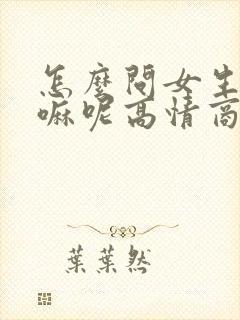 怎麼問女生
嘛呢高情商
葉葉然